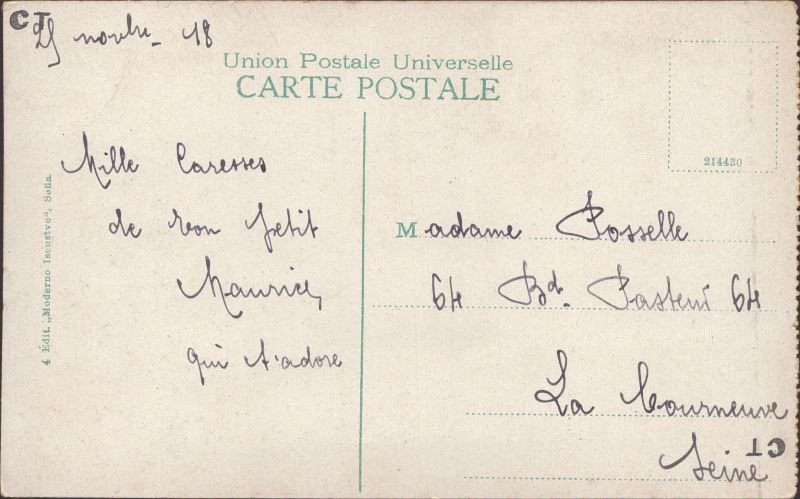 CT
25 novbre 18
Union Postale Universelle
CARTE POSTALE
214430
Mille Caresses
de ton petit
Maurice,
qui t'adore
Madame Posselle
64 Bd. Pasteur 64
La Courneuve
Seine
CT
4 Édit. „Moderno Iscustvo", Sofia.